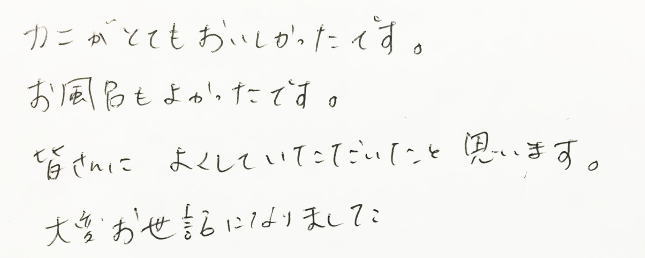 カニがとてもおいしかったです。
お風呂もよかったです。
皆さんに よくしていただいたと思います。
大変お世話になりました